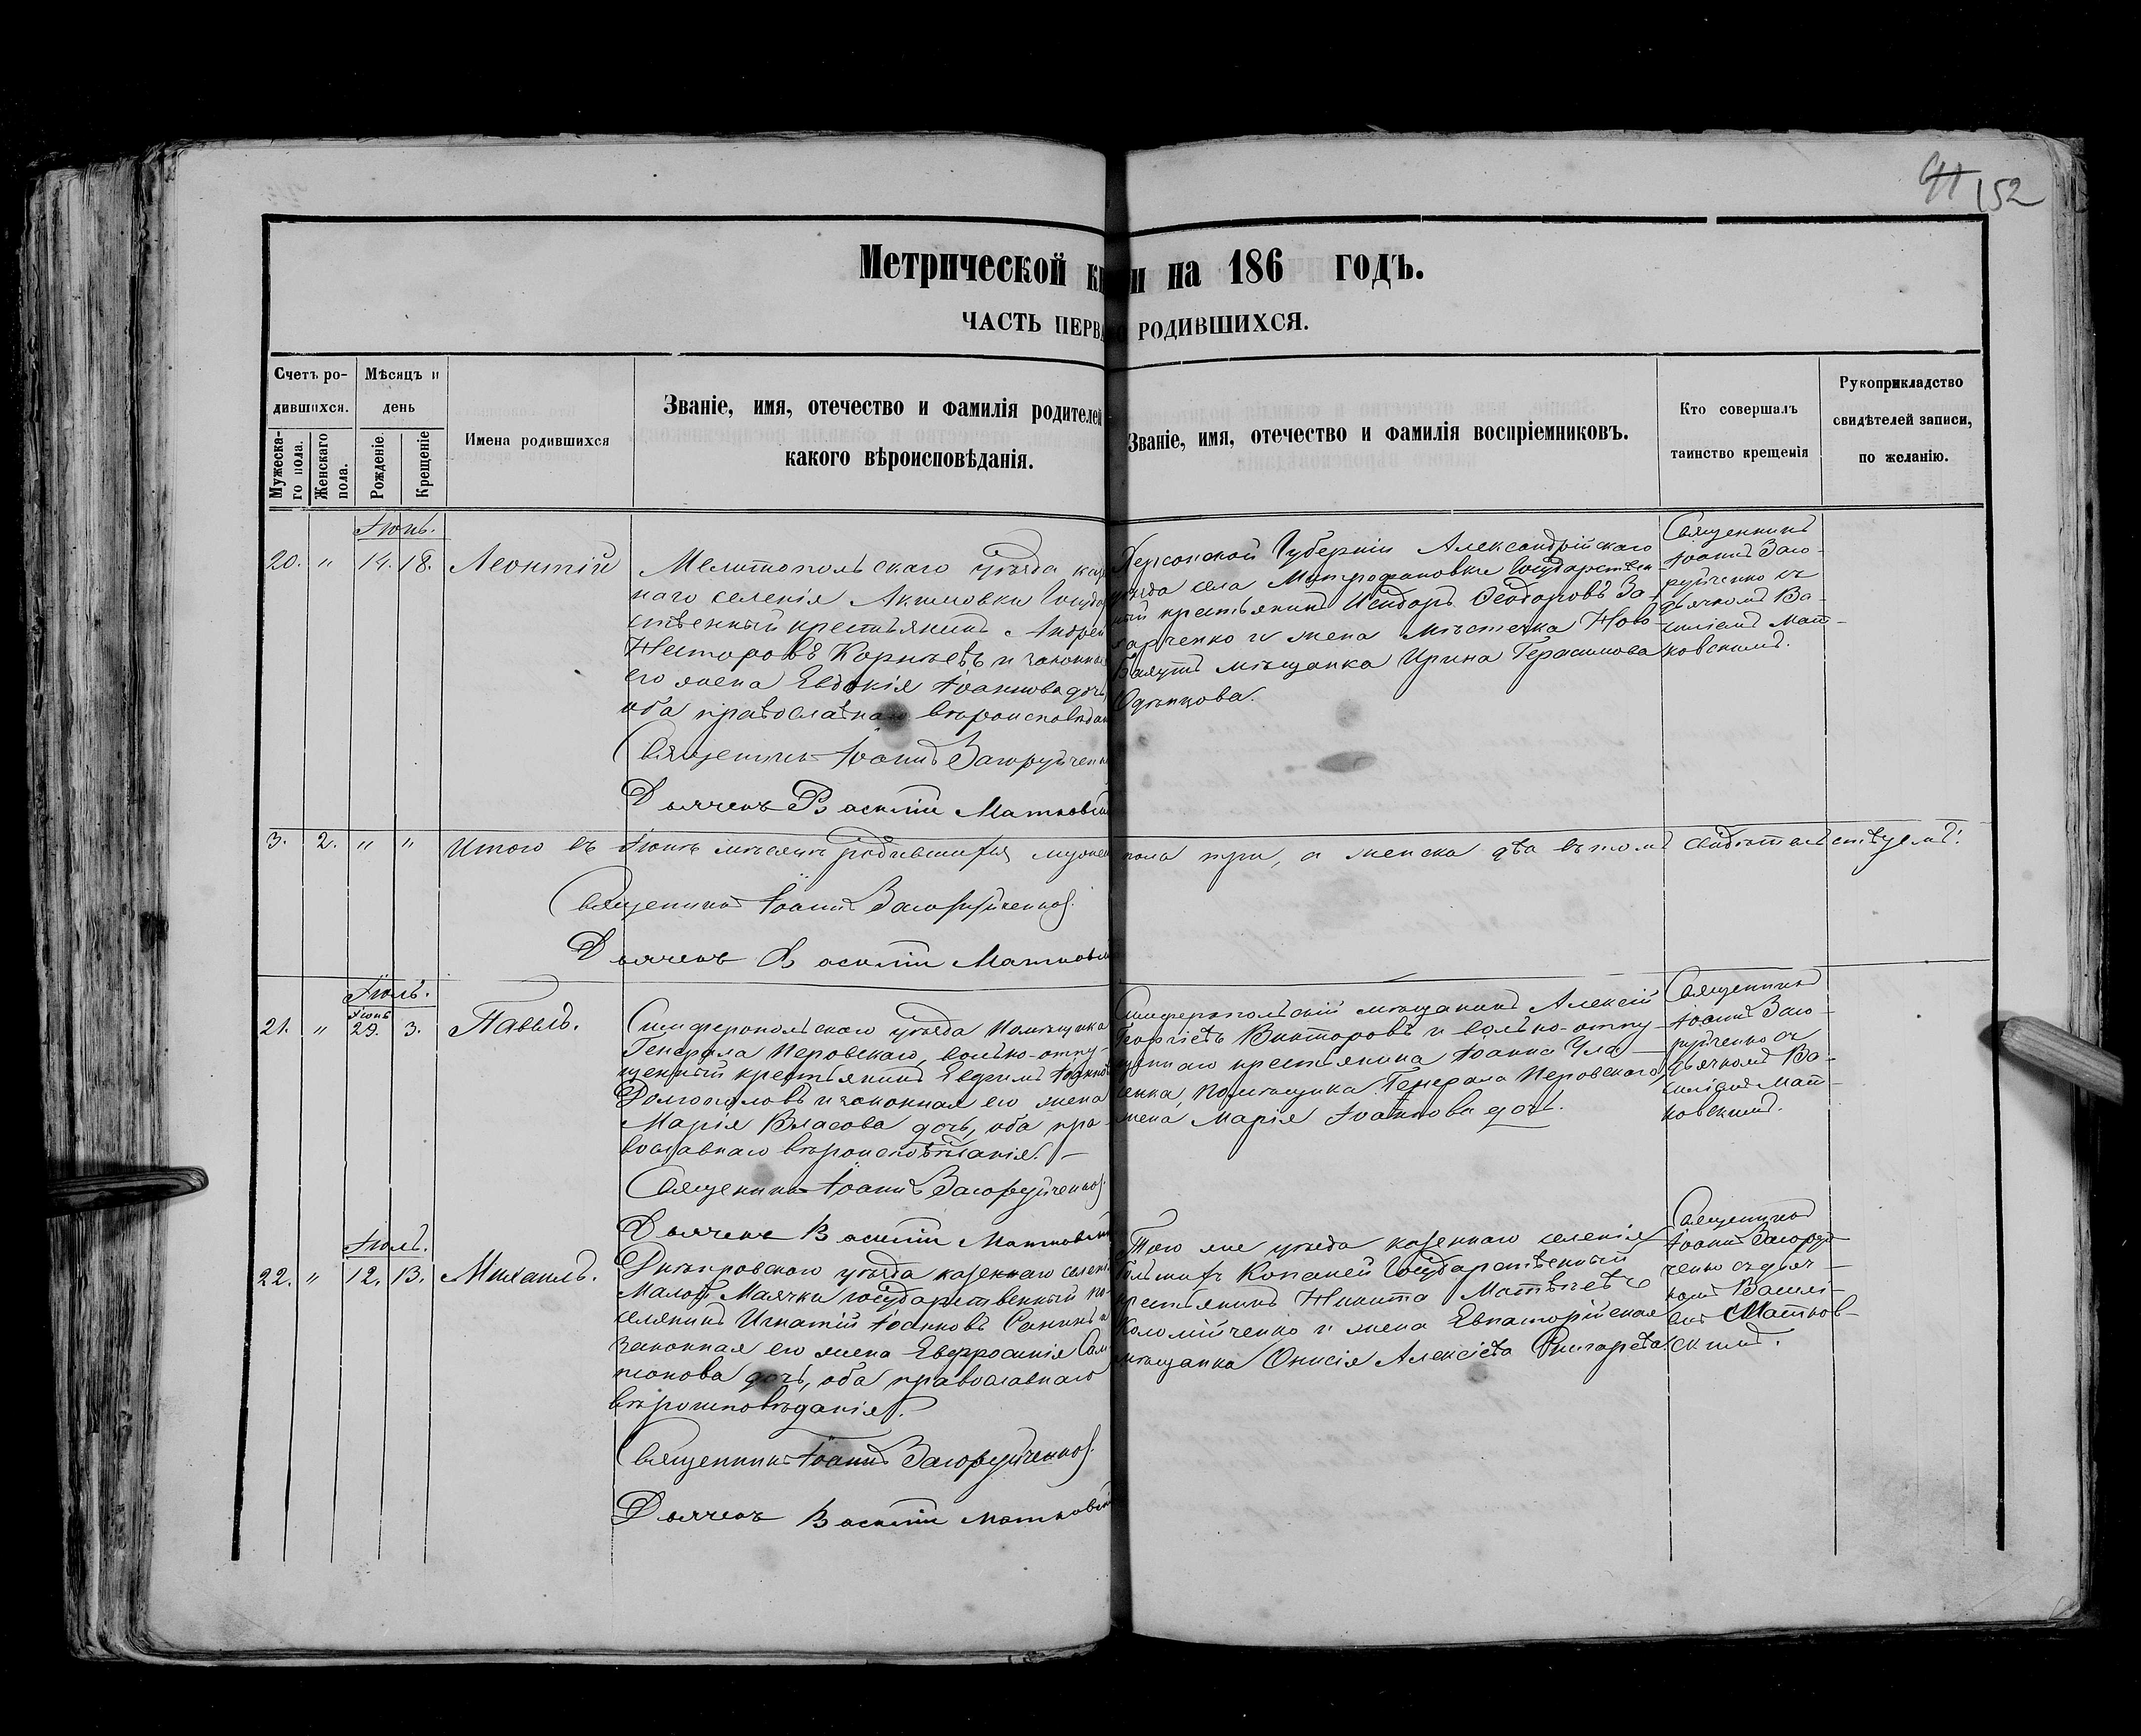 91 152
Метрической книги на 186 годъ.
ЧАСТЬ ПЕРВАЯ О РОДИВШИХСЯ.
Счетъ ро-
дившихся.
Мужеска-
го пола.
Женскаго
пола.
Мѣсяцъ и
день
Рожденіе.
Крещеніе
Имена родившихся
Званіе, имя, отечество и фамилія родителей
какого вѣроисповѣданія.
Званіе, имя, отечество и фамилія воспріемниковъ.
Кто совершалъ
таинство крещенія
Рукоприкладство
свидѣтелей записи,
по желанію.
Іюнь.
20. " 14. 18. Леонтій
Мелитопольскаго уѣзда каз
наго селенія Акимовки Госуда
ственный крестьянинъ Андрей
Несторовъ Корнѣевъ и законная
его жена Евдокія Іоаннова дочь
оба православнаго вѣроисповѣдан
Священникъ Іоаннъ Загоруйченко
Дьячекъ Василій Матковскі
Херсонской Губерніи Александрійскаго
уѣзда села Митрофановки Государствен-
ный крестьянинъ Исидоръ Ѳеодоровъ За-
харченко и жена мѣстечка Ново-
мѣщанка Ирина Герасимова
Одинцова.
Священникъ
Іоаннъ Заго-
руйченко съ
дьячкомъ Ва-
силіемъ Мат-
ковскимъ.
3. 2. " " Итого въ Іюнѣ мѣсяцѣ родившихся мужеска пола три, а женска два въ томъ свидѣтельствуемъ:
Священникъ Іоаннъ Загоруйченко.
Дьячекъ Василій Матковскі
Іюль.
Іюнь
21. " 29. 3. Павелъ.
Симферопольскаго уѣзда Помѣщика
Генерала Перовскаго, вольно-отпу-
щенный крестьянинъ Евфимъ Іоаннов
Долгополовъ и законная его жена
Марія Власова дочь, оба пра-
вославнаго вѣроисповѣданія.
Священникъ Іоаннъ Загоруйченко.
Дьячекъ Василій Матковскій
Симферопольскій мѣщанинъ Алексій
Георгіевъ Викторовъ и вольно-отпу-
щеннаго крестьянина Іоанна
Помѣщика Генерала Перовскаго,
жена Марія Іоаннова дочь.
Священникъ
Іоаннъ Заго-
руйченко съ
дьячкомъ Ва-
силіемъ Мат-
ковскимъ.
Іюль.
22. " 12. 13. Михаилъ.
Днѣпровскаго уѣзда казеннаго селен.
Малой Маячки государственный по-
селянинъ Игнатій Іоанновъ Санинъ и
законная его жена Евфросинія Сам
псонова дочь, оба православнаго
вѣроисповѣданія.
Священникъ Іоаннъ Загоруйченко.
Дьячекъ Василій Матковскій
Того же уѣзда казеннаго селенія
Большихъ Копаней Государственный
крестьянинъ Никита Матвѣевъ
Коломійченко и жена Евпаторійская
мѣщанка Онисія Алексіева
Священникъ
Іоаннъ Загоруй-
ченко съ дьяч-
комъ Васил-
Матков-
скимъ.